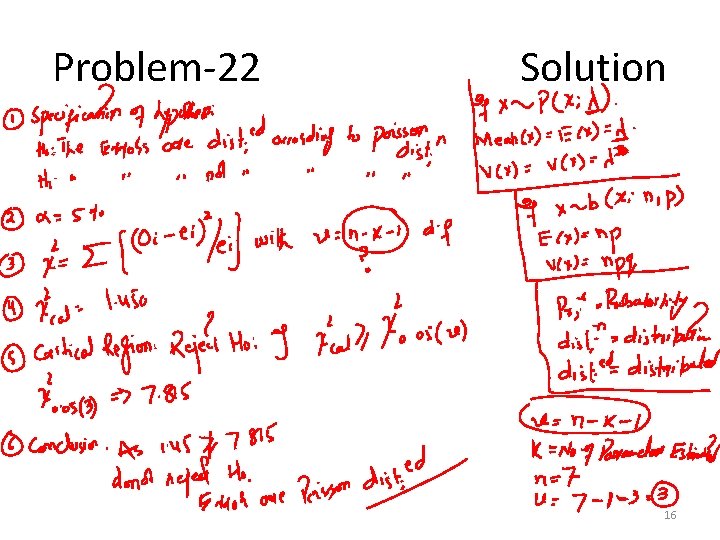 Problem-22
Solution
① Specification of hypothesis
H₀: The Errors are dist.ed according to Poisson dist.n
H₁ " " " not " " " "
② α = 5 %
③ χ² = Σ [(Oi - ei)²/ei] with υ = n-k-1 d.f
?
④ χ²cal = 1.450
⑤ Critical Region: Reject H₀: if χ²cal ≥ χ²0.05(υ)
χ²0.05(3) => 7.815
⑥ Conclusion. As 1.45 ≱ 7.815
donot reject H₀.
Errors are Poisson dist.ed
if x ~ P(x; λ).
Mean(x) = E(x) = λ
V(x) = V(x) = λ
if x ~ b(x; n, p)
E(x) = np
V(x) = npq
= Probability
dist.n = distribution
dist.ed = distributed
υ = n-k-1
K = No of Parameters Estimated
n = 7
υ = 7-1-3 = ③
16